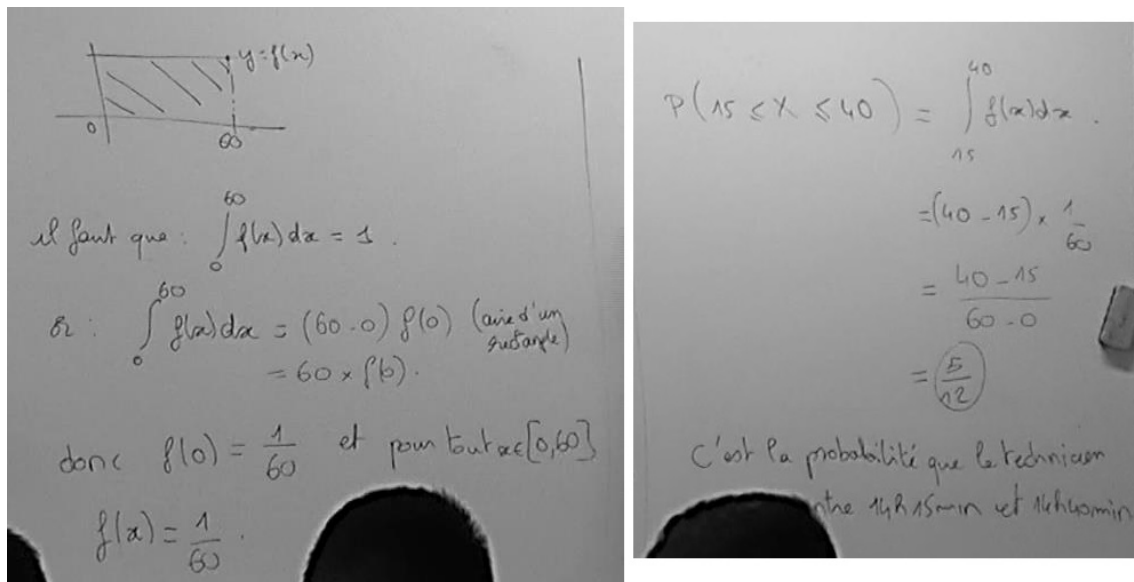 y = f(x)
0
60
il faut que : ∫₀⁶⁰ f(x) dx = 1.
or : ∫₀⁶⁰ f(x) dx = (60 - 0) f(0) (aire d'un rectangle)
= 60 × f(0).
donc f(0) = 1/60 et pour tout x ∈ [0,60]
f(x) = 1/60.
P(15 ≤ X ≤ 40) = ∫₁₅⁴⁰ f(x) dx.
= (40 - 15) × 1/60
= (40 - 15)/(60 - 0)
= 5/12
C'est la probabilité que le technicien
ntre 14h15min et 14h40min